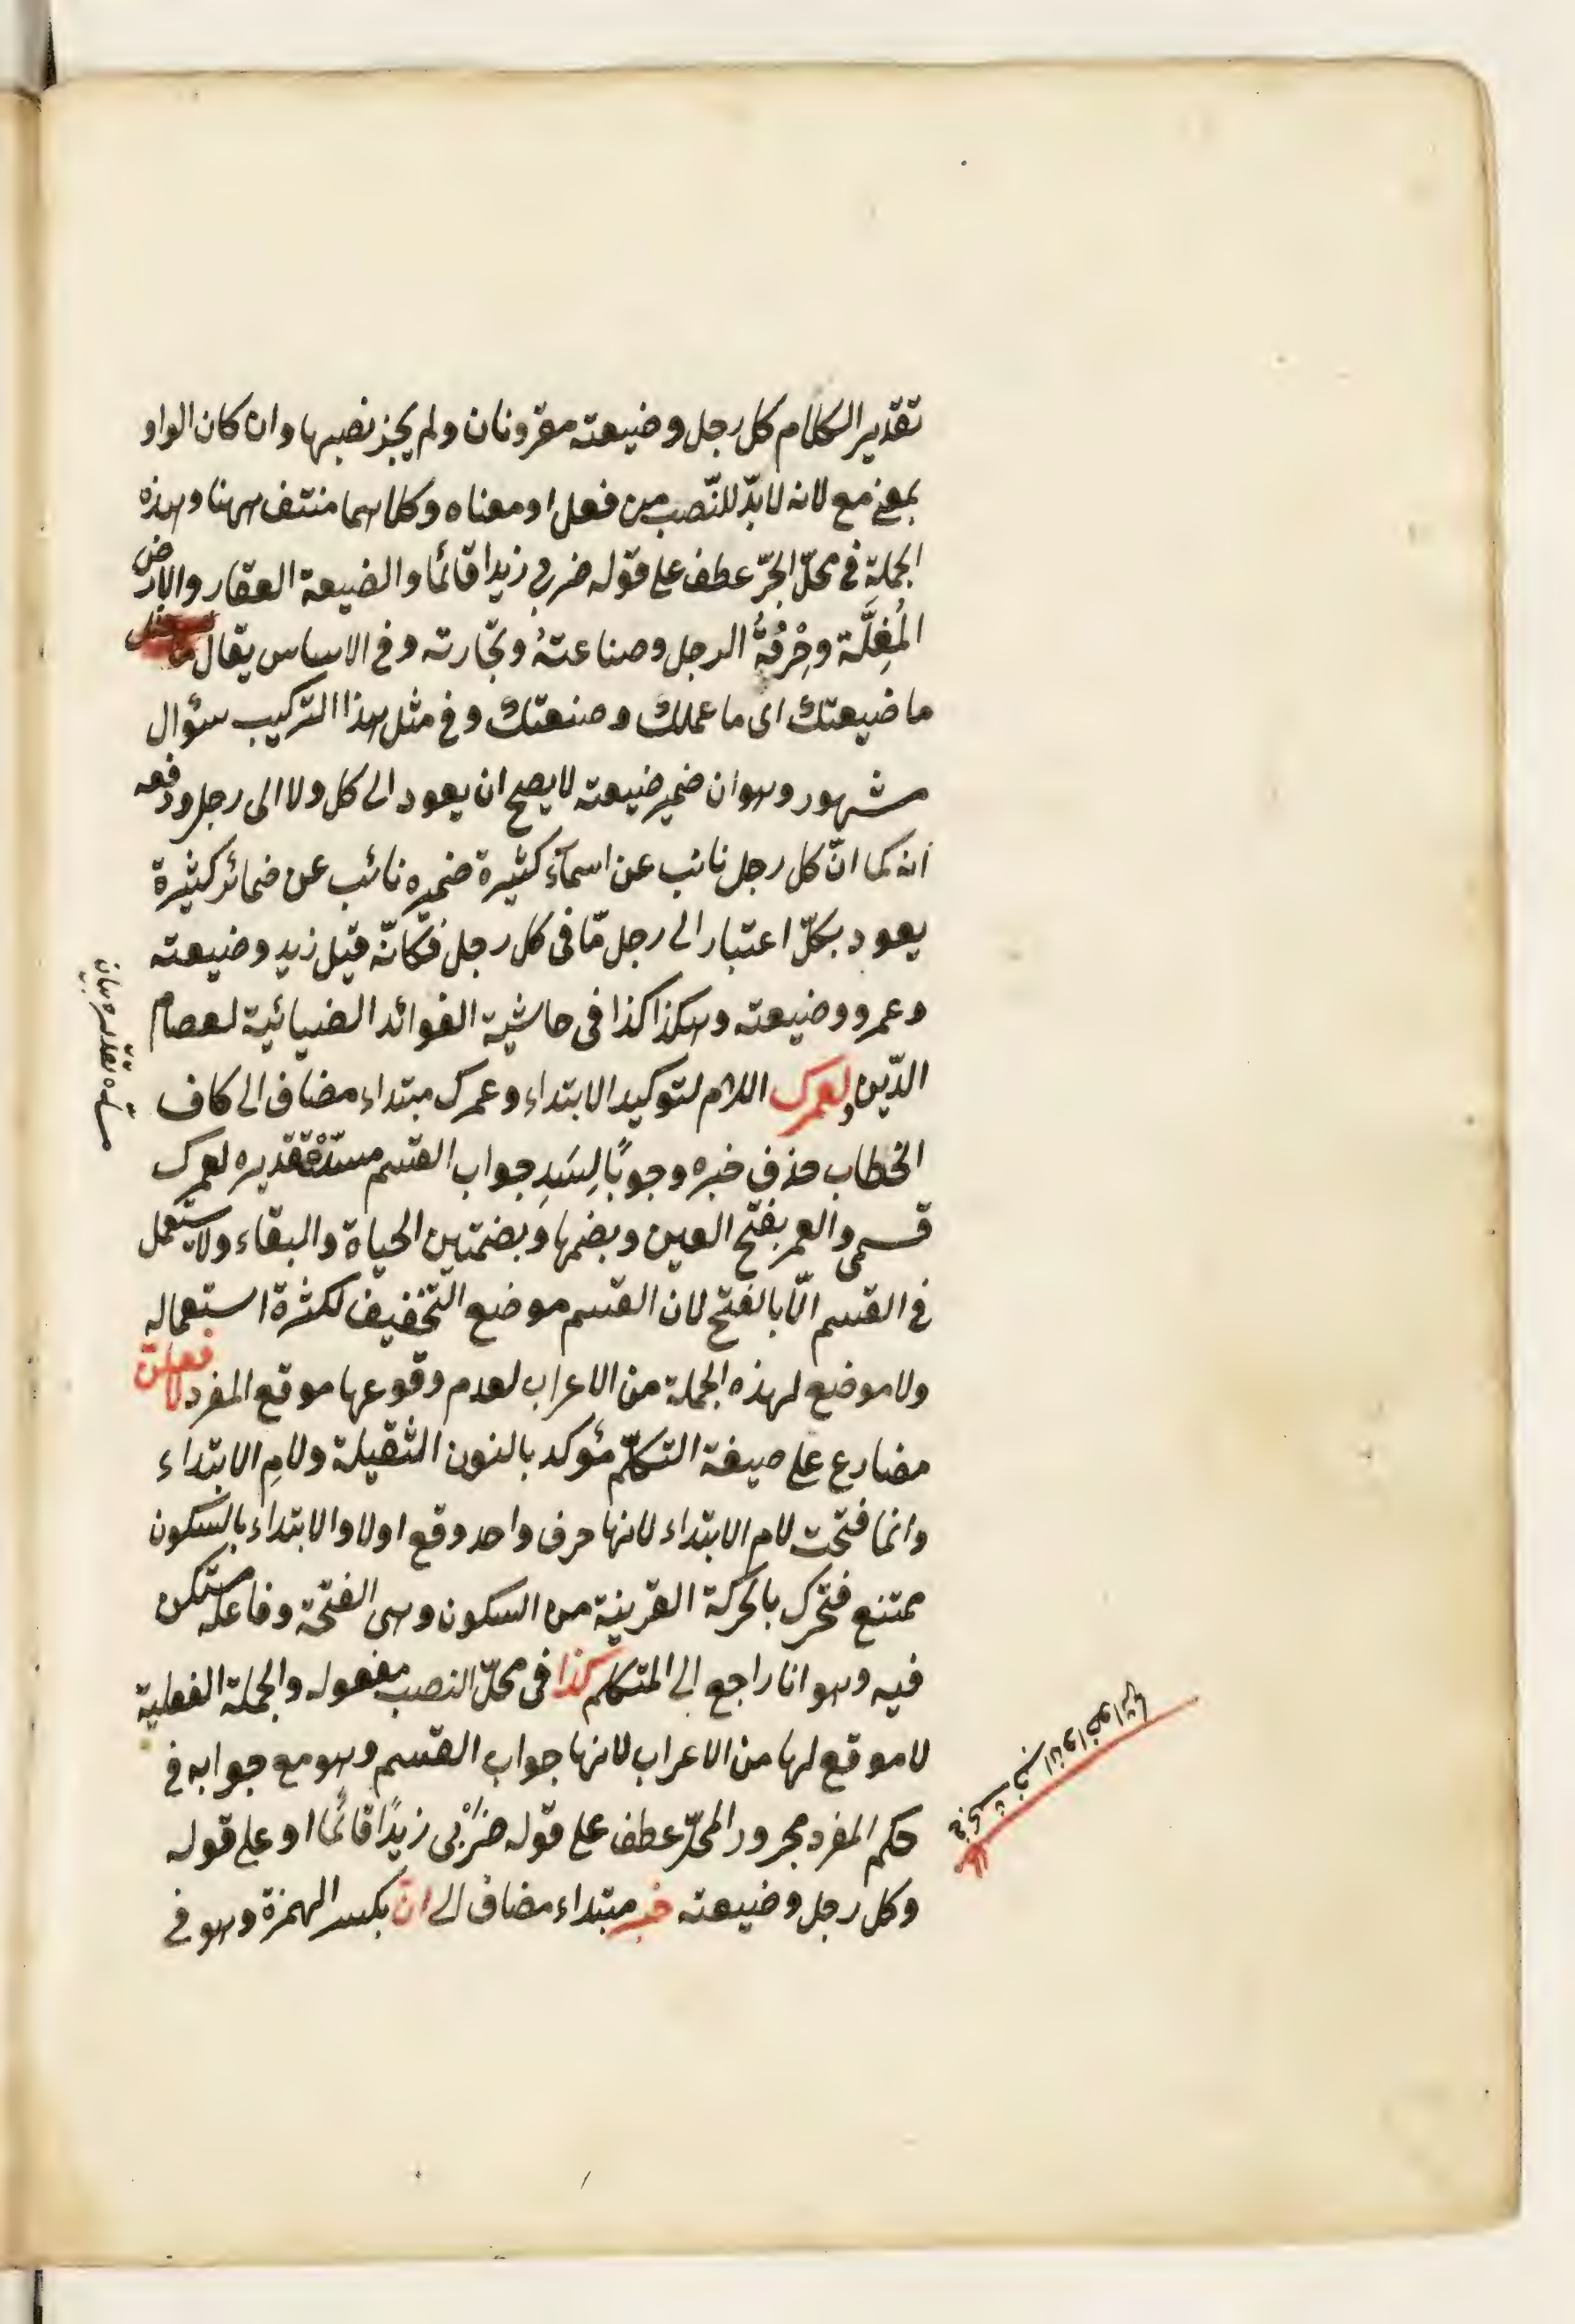 تقدير الكلام كل رجل وضيعته مقرونان ولم يجز نصبها وان كان الواو
بمعنى مع لانه لا بدّ للنّصب من فعل او معناه وكلاهما منتف ههنا وهذه
الجملة في محلّ الجرّ عطف على قوله ضربي زيدا قائمًا والضيعة العقار والارض
المُغِلَّة وحِرْفةُ الرجل وصناعتهُ وتجارته وفي الاساس يقال
ما ضيعتك اى ما عملك وصنعتك وفي مثل هذا التركيب سؤال
مشهور وهو ان ضمير ضيعته لا يصح ان يعود الى كل ولا الى رجل ودفعه
انه كما انّ كل رجل نائب عن اسمآء كثيرة ضميره نائب عن ضمائر كثيرة
يعود بكلّ اعتبار الى رجل مّا فى كل رجل فكانّه قيل زيد وضيعته
وعمرو وضيعته وهكذا كذا فى حاشية الفوائد الضيائية لعصام
الدّين ولعمرك اللام لتوكيد الابتداء وعمرك مبتداء مضاف الى كاف
الخطاب حذف خبره وجوبًا لِسَدِ جواب القسم مسدّه تقديره لعمرك
قسمى والعمر بفتح العين وبضمها وبضمتين الحياة والبقاء ولا يستعمل
في القسم الّا بالفتح لان القسم موضع التخفيف لكثرة استعماله
ولا موضع لهذه الجملة من الاعراب لعدم وقوعها موقع المفرد لافعلنّ
مضارع على صيغة التكلّم مؤكد بالنون الثقيلة ولامِ الابتداء
وانما فتحت لام الابتداء لانها حرف واحد وقع اولا والابتداء بالسكون
ممتنع فتحرك بالحركة القريبة من السكون وهى الفتحة وفاعله مستكن
فيه وهو انا راجع الى المتكلم كذا فى محلّ النصب مفعوله والجملة الفعلية
لا موقع لها من الاعراب لانها جواب القسم وهو مع جوابه في
حكم المفرد مجرور المحلّ عطف على قوله ضرْبى زيدًا قائمًا او على قوله
وكل رجل وضيعته خبر مبتداء مضاف الى انّ بكسر الهمزة وهو في